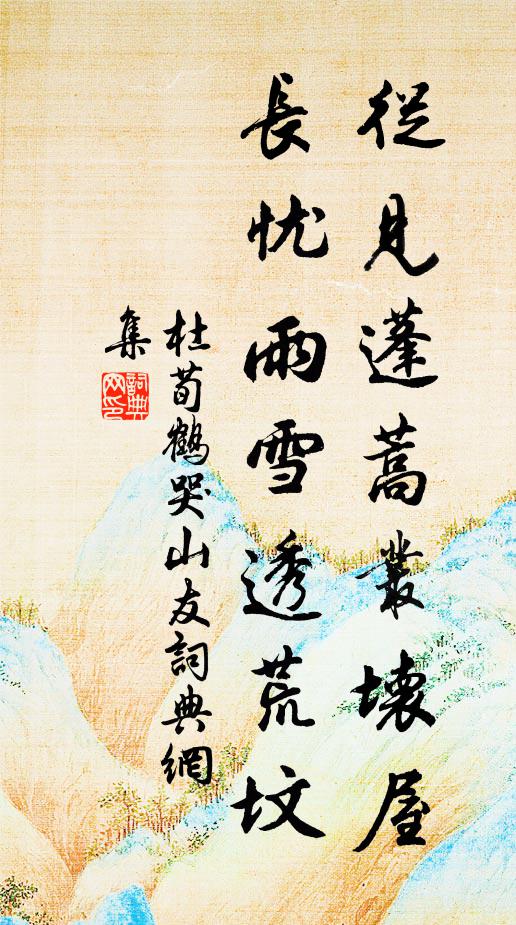 從見蓬蒿叢壞屋
長忧雨雪透荒坟
杜荀鶴哭山友詞典網
集
詞典網印